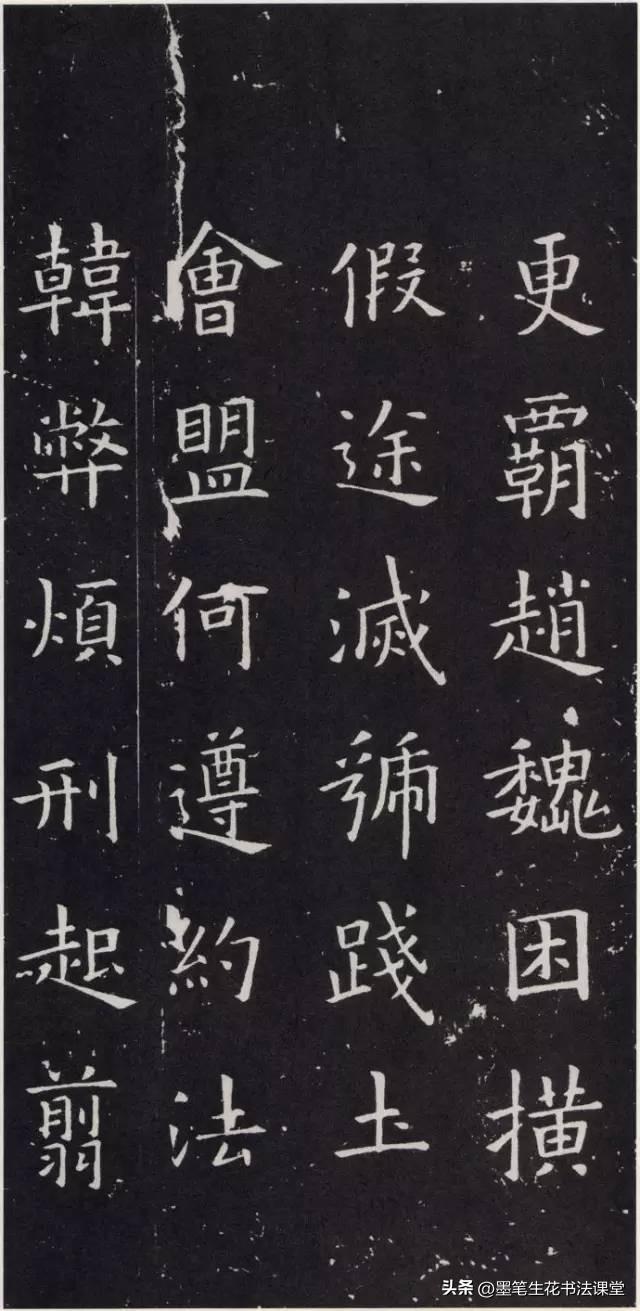 更霸趙魏困橫
假途滅虢踐土
會盟何遵約法
韓弊煩刑起翦
头条 @墨笔生花书法课堂